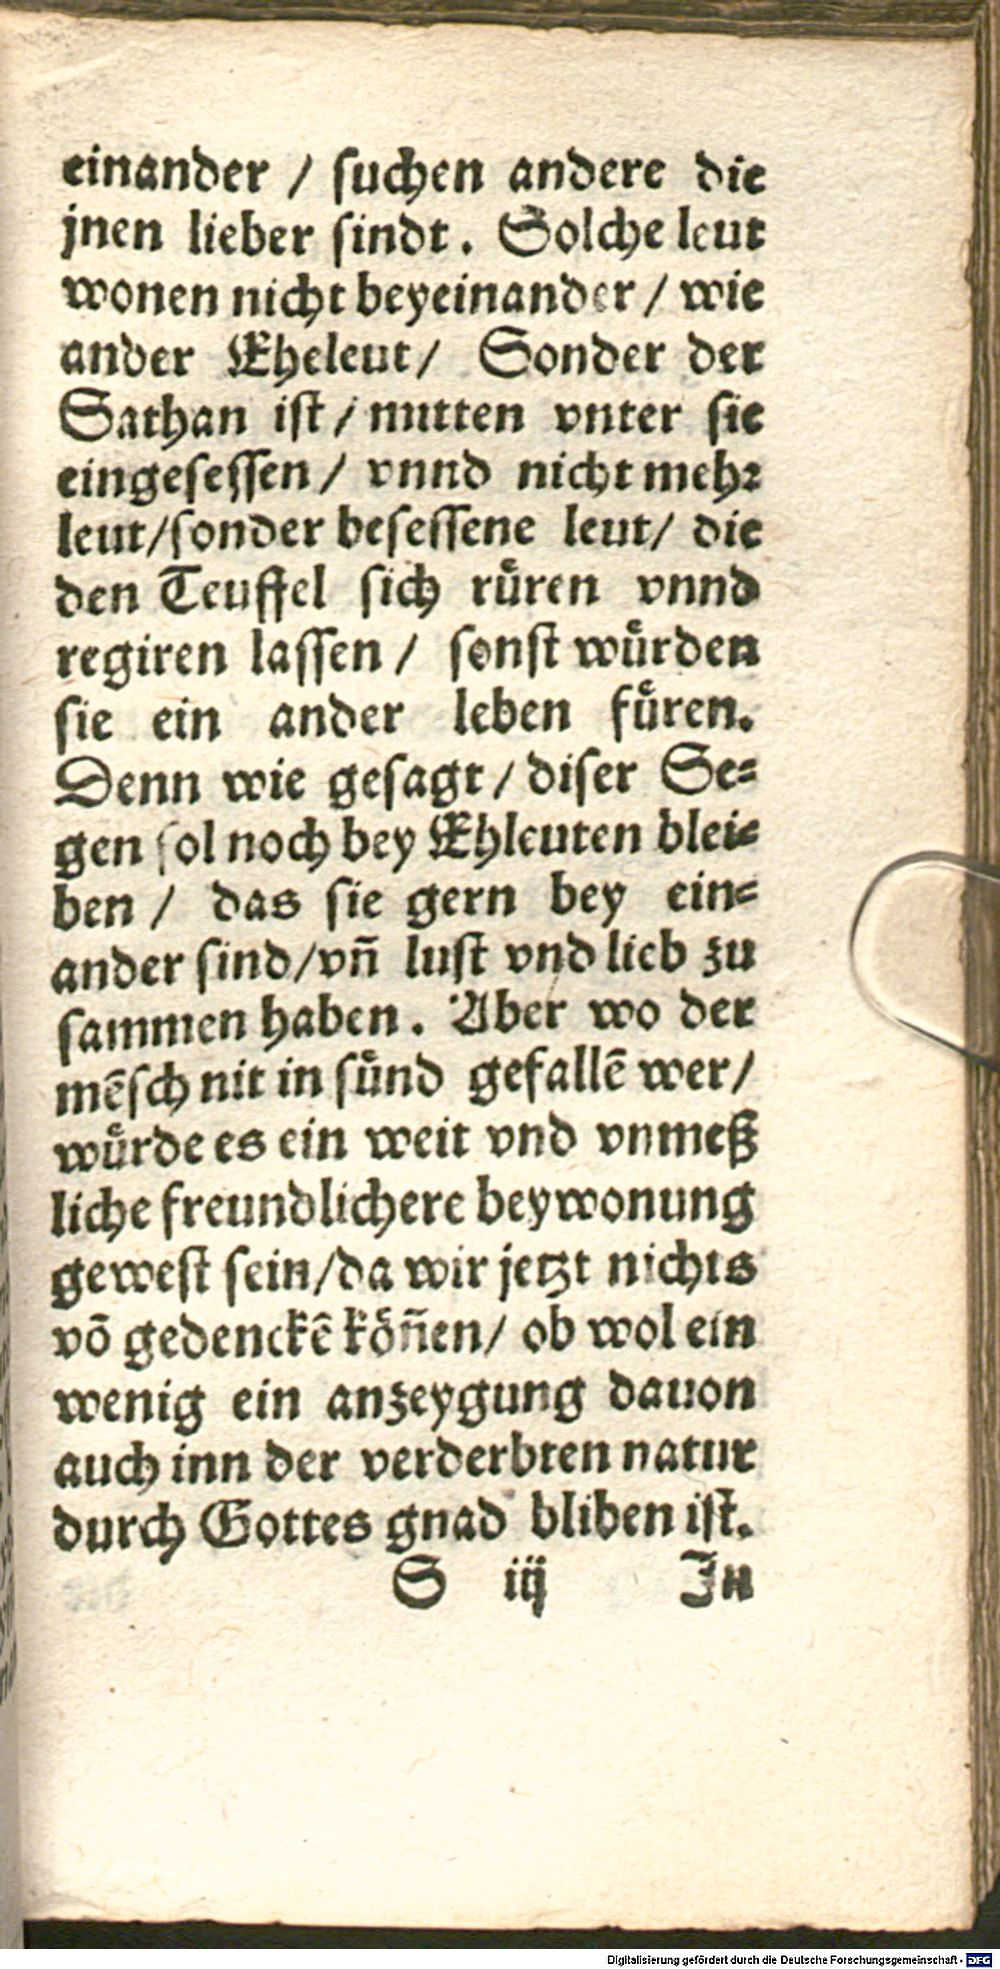 einander / ſuchen andere die
jnen lieber ſindt. Solche leut
wonen nicht beyeinander / wie
ander Eheleut / Sonder der
Sathan iſt / mitten vnter ſie
eingeſeſſen / vnnd nicht mehr
leut / ſonder beſeſſene leut / die
den Teuffel ſich rüren vnnd
regiren laſſen / ſonſt würden
ſie ein ander leben füren.
Denn wie geſagt / diſer Se⸗
gen ſol noch bey Ehleuten blei⸗
ben / das ſie gern bey ein⸗
ander ſind / vñ luſt vnd lieb zu
ſammen haben. Aber wo der
mẽſch nit in ſünd gefallẽ wer /
würde es ein weit vnd vnmeß
liche freundlichere beywonung
geweſt ſein / da wir jetzt nichts
võ gedenckẽ köñen / ob wol ein
wenig ein anzeygung dauon
auch inn der verderbten natur
durch Gottes gnad bliben iſt.
S iij In
Digitalisierung gefördert durch die Deutsche Forschungsgemeinschaft - DFG